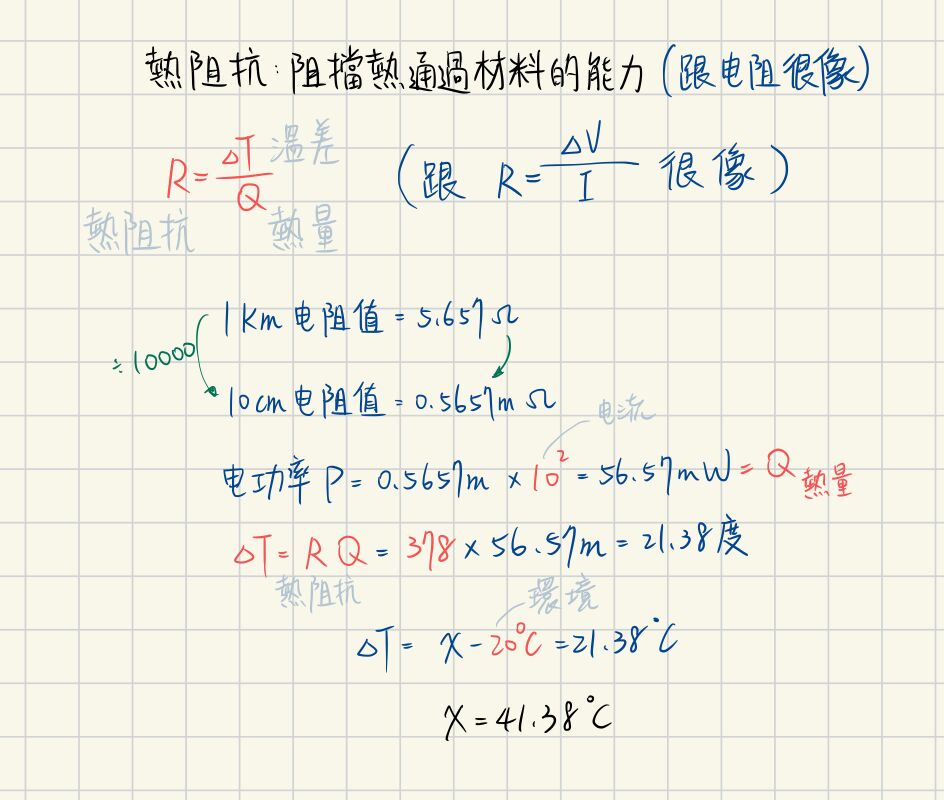 熱阻抗：阻擋熱通過材料的能力(跟电阻很像)
R=ΔT/Q 溫差 (跟 R=ΔV/I 很像)
熱阻抗 熱量
1km电阻值=5.657Ω
÷10000
10cm电阻值=0.5657mΩ
电流
电功率 P=0.5657m×10²=56.57mW=Q 熱量
ΔT=RQ=378×56.57m=21.38度
熱阻抗 環境
ΔT= X-20°C=21.38°C
X=41.38°C